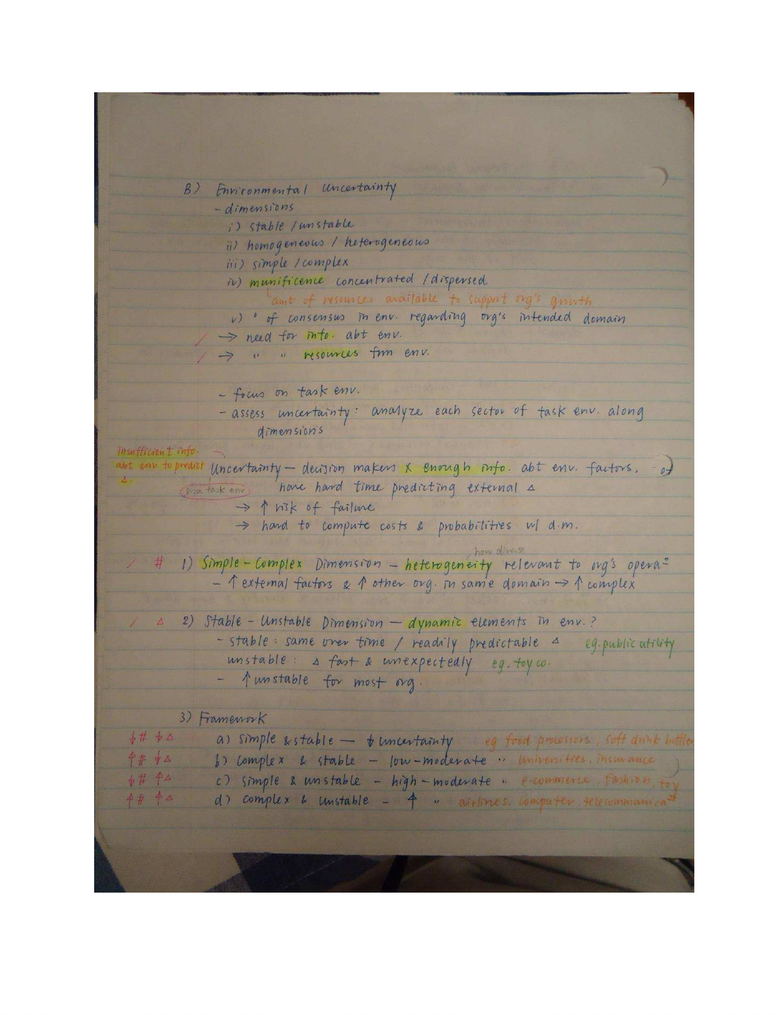 B) Environmental Uncertainty
- dimensions
i) stable / unstable
ii) homogeneous / heterogeneous
iii) simple / complex
iv) munificence concentrated / dispersed
amt of resources available to support org's growth
v) ° of consensus in env. regarding org's intended domain
→ need for info. abt env.
→ " " resources frm env.
- focus on task env.
- assess uncertainty: analyze each sector of task env. along
dimensions
insufficient info.
abt env. to predict
Δ.
Uncertainty - decision makers x enough info. abt env. factors,
task env
have hard time predicting external Δ
→ ↑ risk of failure
→ hard to compute costs & probabilities w/ d.m.
how diverse
# 1) Simple-Complex Dimension - heterogeneity relevant to org's opera=
- ↑ external factors & ↑ other org. in same domain → ↑ complex
Δ 2) Stable - Unstable Dimension - dynamic elements in env.?
- stable: same over time / readily predictable Δ eg. public utility
unstable: Δ fast & unexpectedly eg. toy co.
- ↑ unstable for most org.
3) Framework
↓# ↓Δ a) simple & stable - ↓ uncertainty eg food processors, soft drink bottler
↑# ↓Δ b) complex & stable - low-moderate " universities, insurance
↓# ↑Δ c) simple & unstable - high-moderate " e-commerce, fashion, toy
↑# ↑Δ d) complex & unstable - ↑ " airlines, computer, telecommunica